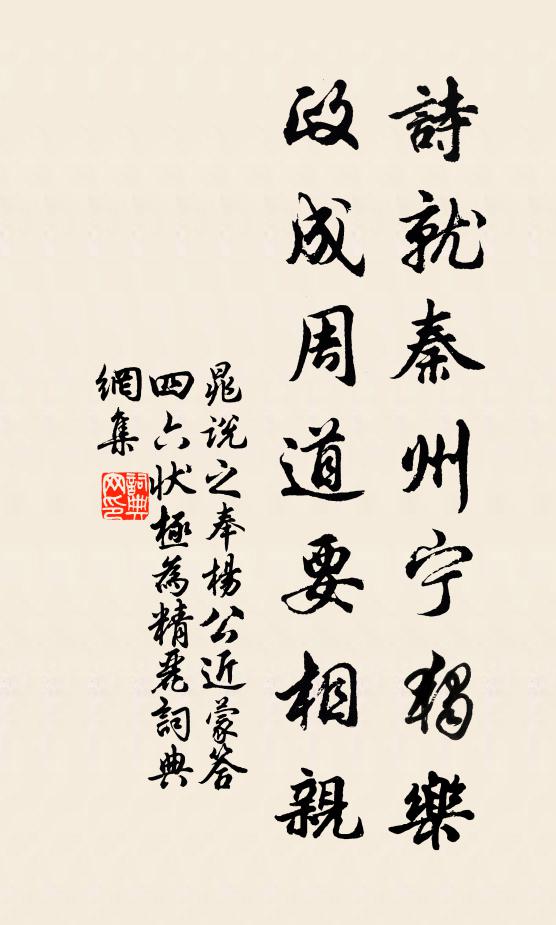 詩就秦州宁獨樂
政成周道要相親
晁説之奉楊公近蒙答
四六状極為精麗詞典
網集
詞典
网印